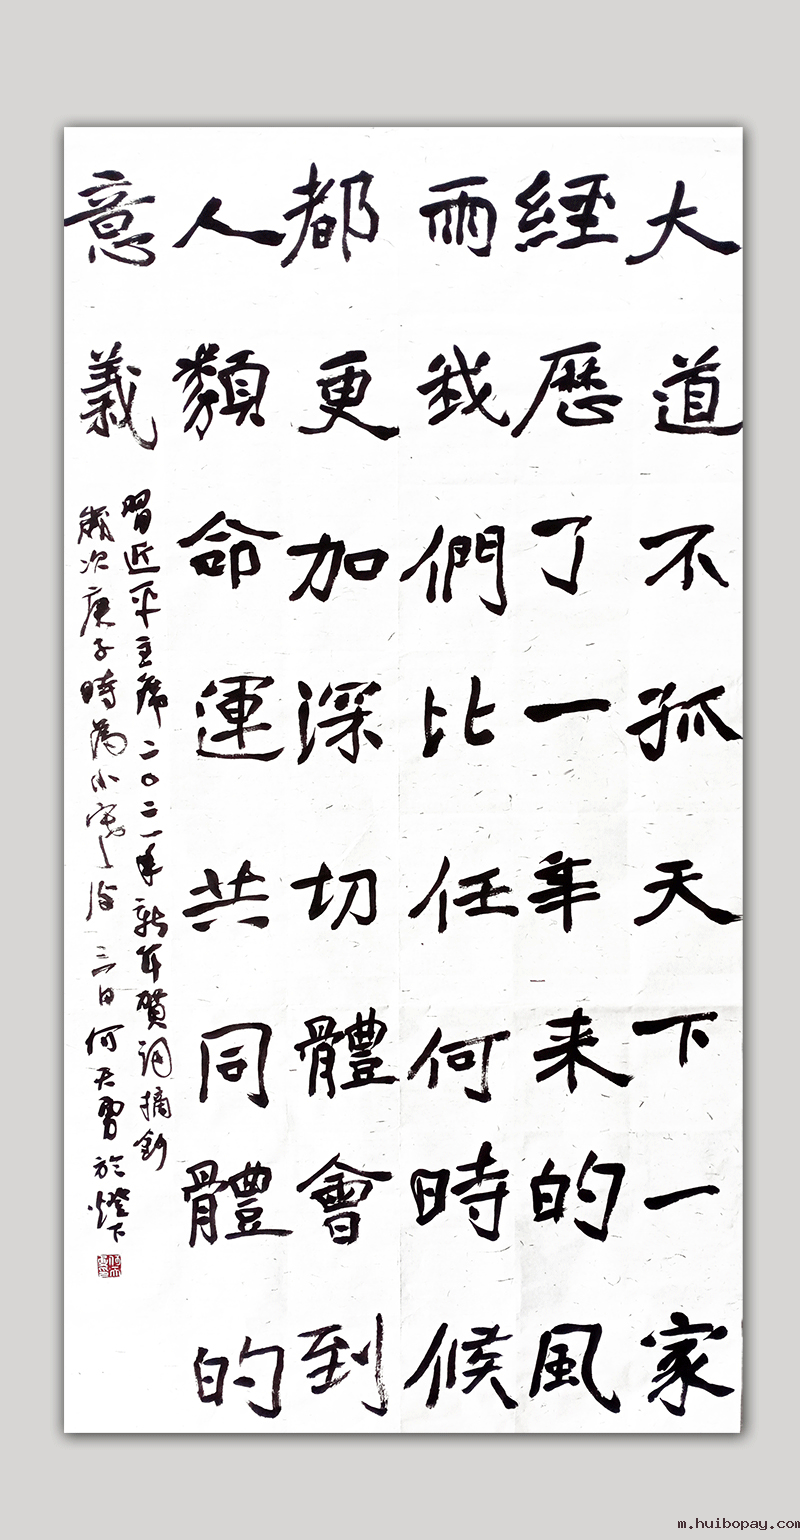 大道不孤天下一家
經歷了一年来的風
雨我們比任何時候
都更加深切體會到
人類命運共同體的
意義
習近平主席二〇二一年新年賀詞摘鈔
歲次庚子時為小寒後三日何天勇於燈下
m.huibopay.com